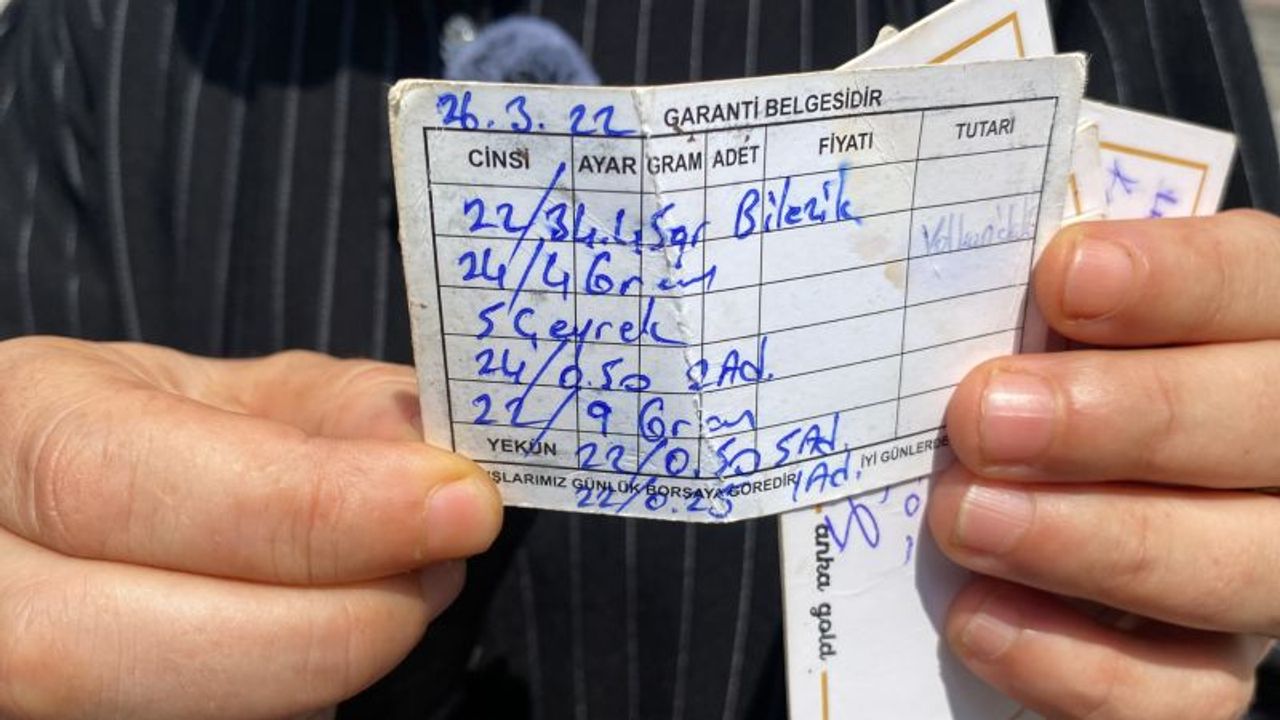 26.3.22 GARANTİ BELGESİDİR
CİNSİ AYAR GRAM ADET FİYATI TUTARI
22/34.45gr Bilezik
24/4 Gram
5 Çeyrek
24/0.50 2 Ad.
22/9 Gram
YEKÜN 22/0.50 5 Ad.
GÜNLÜK BORSAYA GÖREDİR İYİ GÜNLERDE
22/0.25 1 Ad.
anka gold